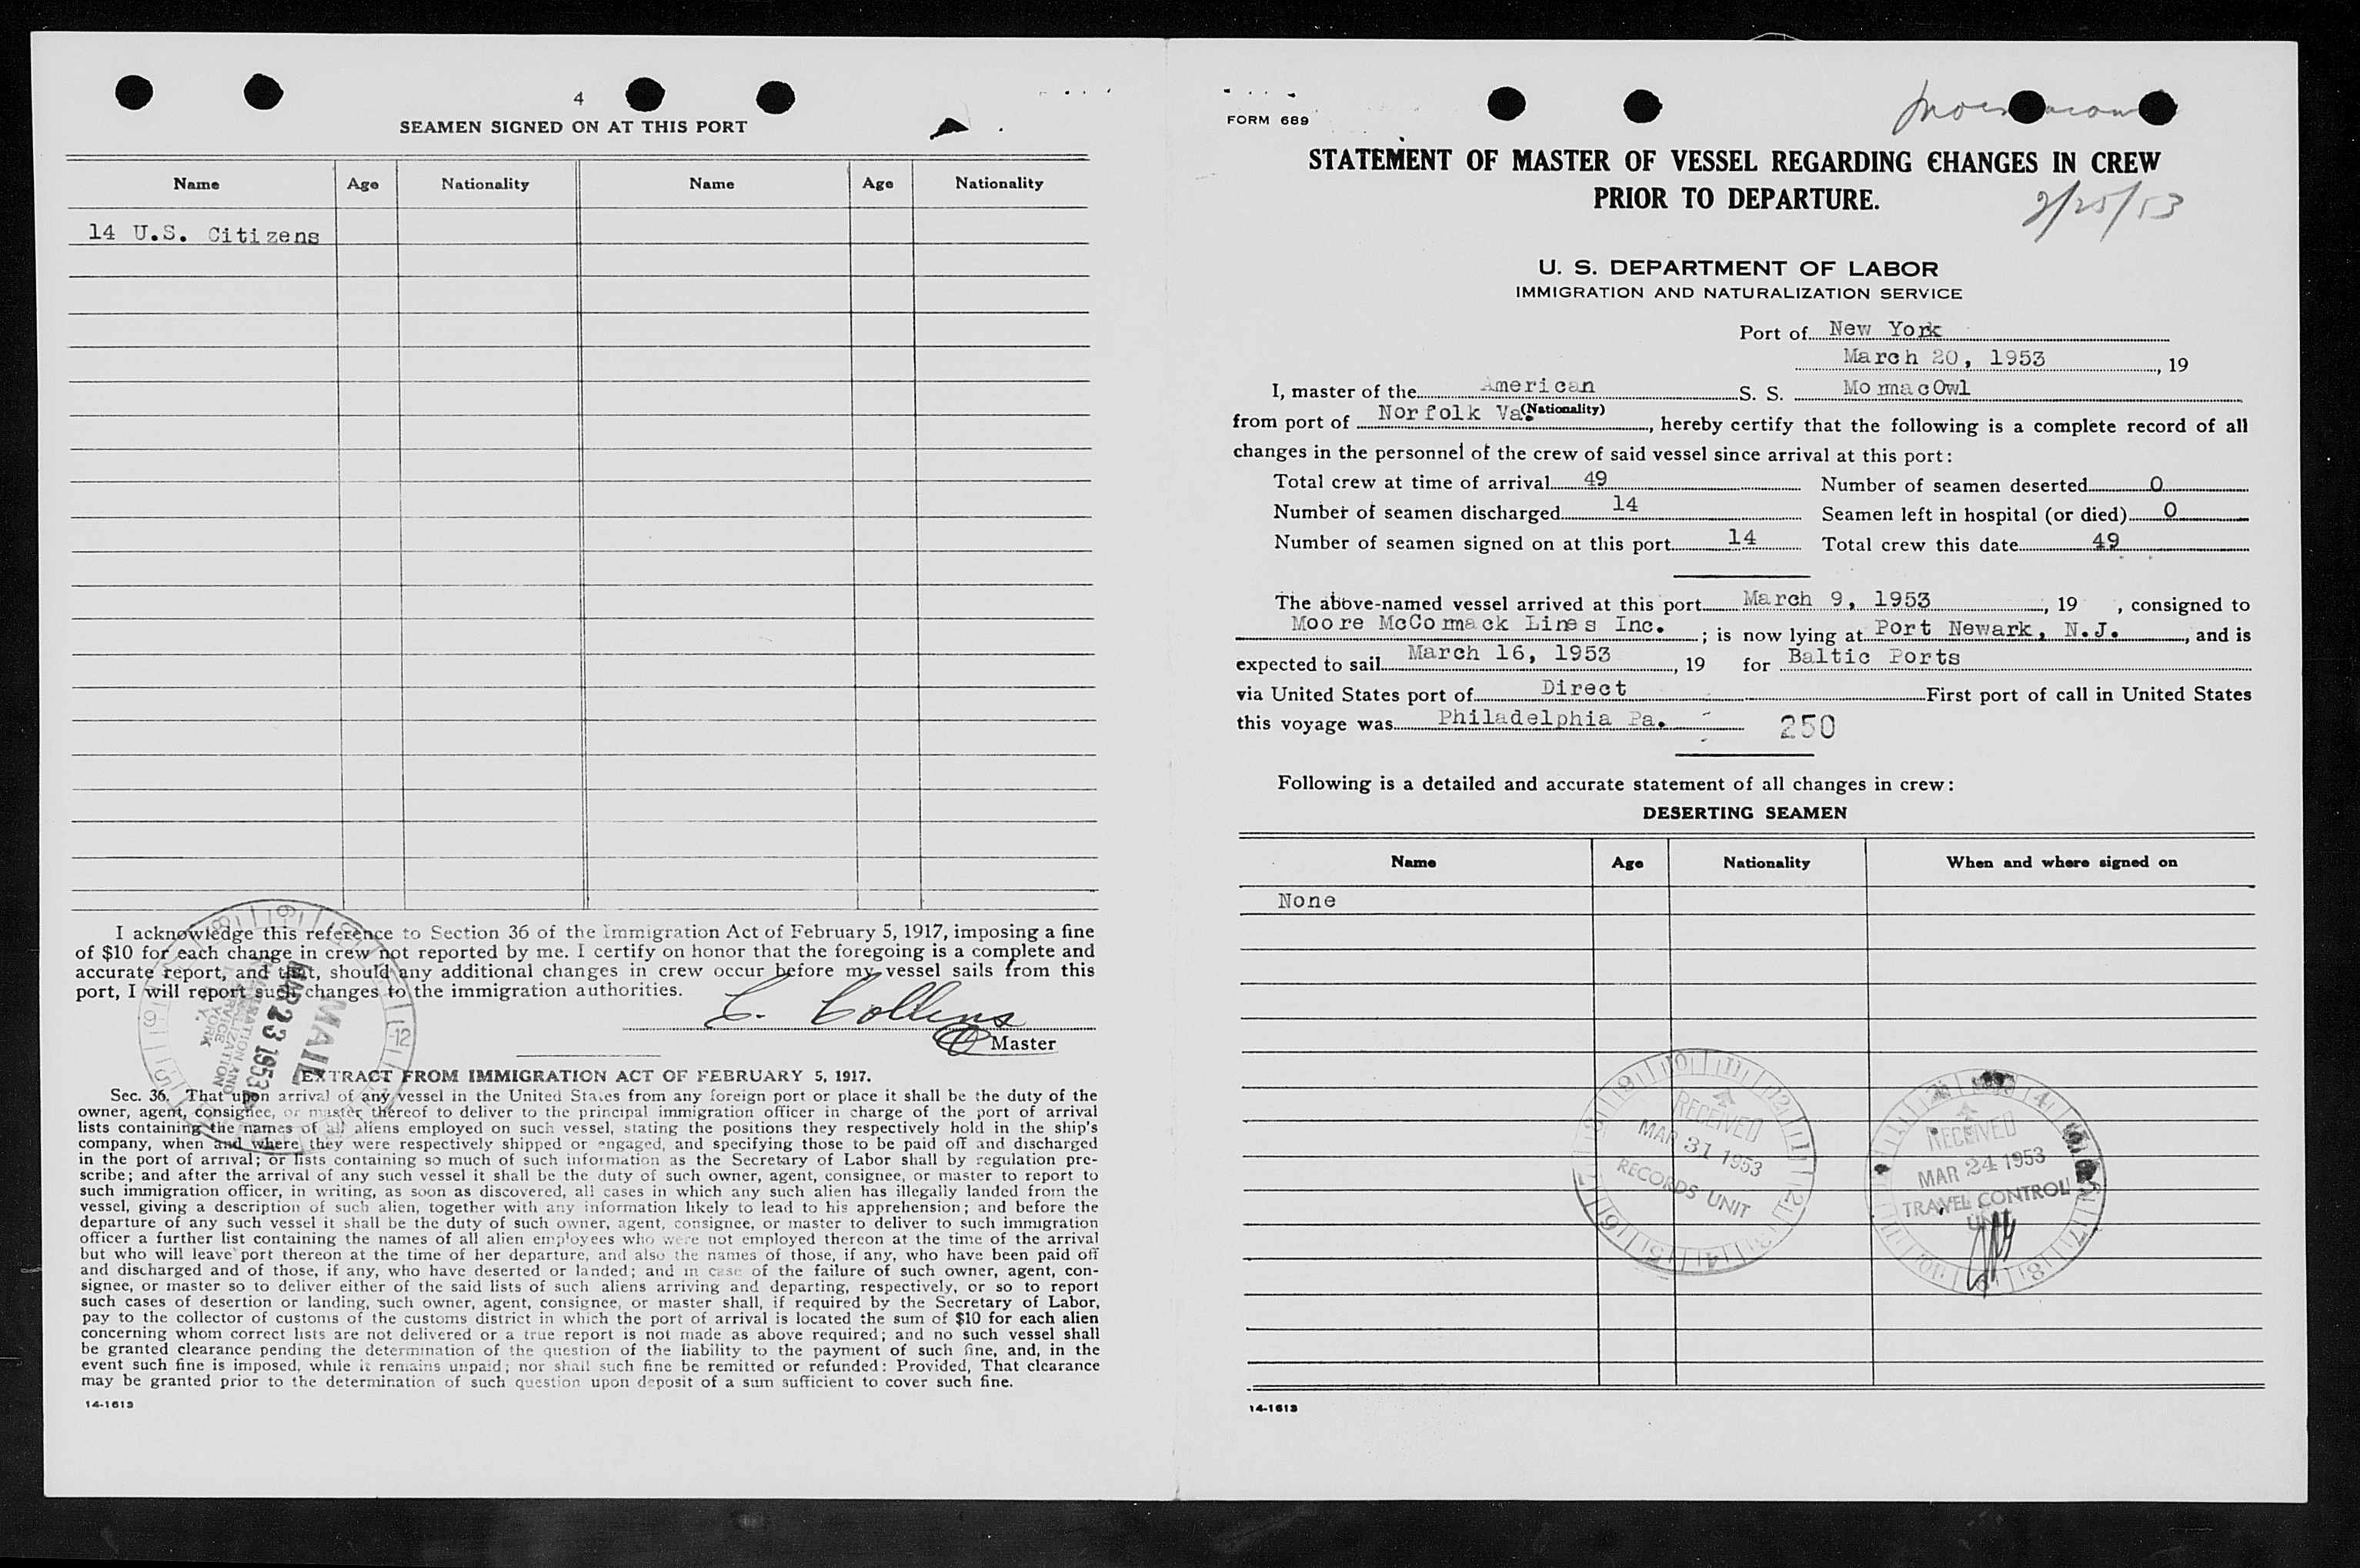 4
SEAMEN SIGNED ON AT THIS PORT
Name Age Nationality Name Age Nationality
14 U.S. Citizens
I acknowledge this reference to Section 36 of the Immigration Act of February 5, 1917, imposing a fine
of $10 for each change in crew not reported by me. I certify on honor that the foregoing is a complete and
accurate report, and that, should any additional changes in crew occur before my vessel sails from this
port, I will report such changes to the immigration authorities.
C. Collins
Master
MAIL
MAR 23 1953
IMMIGRATION AND
NATURALIZATION
SERVICE
NEW YORK
N. Y.
EXTRACT FROM IMMIGRATION ACT OF FEBRUARY 5, 1917.
Sec. 36. That upon arrival of any vessel in the United States from any foreign port or place it shall be the duty of the
owner, agent, consignee, or master thereof to deliver to the principal immigration officer in charge of the port of arrival
lists containing the names of all aliens employed on such vessel, stating the positions they respectively hold in the ship's
company, when and where they were respectively shipped or engaged, and specifying those to be paid off and discharged
in the port of arrival; or lists containing so much of such information as the Secretary of Labor shall by regulation pre-
scribe; and after the arrival of any such vessel it shall be the duty of such owner, agent, consignee, or master to report to
such immigration officer, in writing, as soon as discovered, all cases in which any such alien has illegally landed from the
vessel, giving a description of such alien, together with any information likely to lead to his apprehension; and before the
departure of any such vessel it shall be the duty of such owner, agent, consignee, or master to deliver to such immigration
officer a further list containing the names of all alien employees who were not employed thereon at the time of the arrival
but who will leave port thereon at the time of her departure, and also the names of those, if any, who have been paid off
and discharged and of those, if any, who have deserted or landed; and in case of the failure of such owner, agent, con-
signee, or master so to deliver either of the said lists of such aliens arriving and departing, respectively, or so to report
such cases of desertion or landing, such owner, agent, consignee, or master shall, if required by the Secretary of Labor,
pay to the collector of customs of the customs district in which the port of arrival is located the sum of $10 for each alien
concerning whom correct lists are not delivered or a true report is not made as above required; and no such vessel shall
be granted clearance pending the determination of the question of the liability to the payment of such fine, and, in the
event such fine is imposed, while it remains unpaid; nor shall such fine be remitted or refunded: Provided, That clearance
may be granted prior to the determination of such question upon deposit of a sum sufficient to cover such fine.
14-1613
FORM 689
STATEMENT OF MASTER OF VESSEL REGARDING CHANGES IN CREW
PRIOR TO DEPARTURE.
U. S. DEPARTMENT OF LABOR
IMMIGRATION AND NATURALIZATION SERVICE
Port of New York
March 20, 1953, 19
I, master of the American S. S. MormacOwl
(Nationality)
from port of Norfolk Va., hereby certify that the following is a complete record of all
changes in the personnel of the crew of said vessel since arrival at this port:
Total crew at time of arrival 49 Number of seamen deserted 0
Number of seamen discharged 14 Seamen left in hospital (or died) 0
Number of seamen signed on at this port 14 Total crew this date 49
The above-named vessel arrived at this port March 9, 1953, 19 , consigned to
Moore McCormack Lines Inc. ; is now lying at Port Newark, N.J., and is
expected to sail March 16, 1953, 19 for Baltic Ports
via United States port of Direct First port of call in United States
this voyage was Philadelphia Pa. 250
Following is a detailed and accurate statement of all changes in crew:
DESERTING SEAMEN
Name Age Nationality When and where signed on
None
RECEIVED
MAR 31 1953
RECORDS UNIT
RECEIVED
MAR 24 1953
TRAVEL CONTROL
UNIT
14-1613